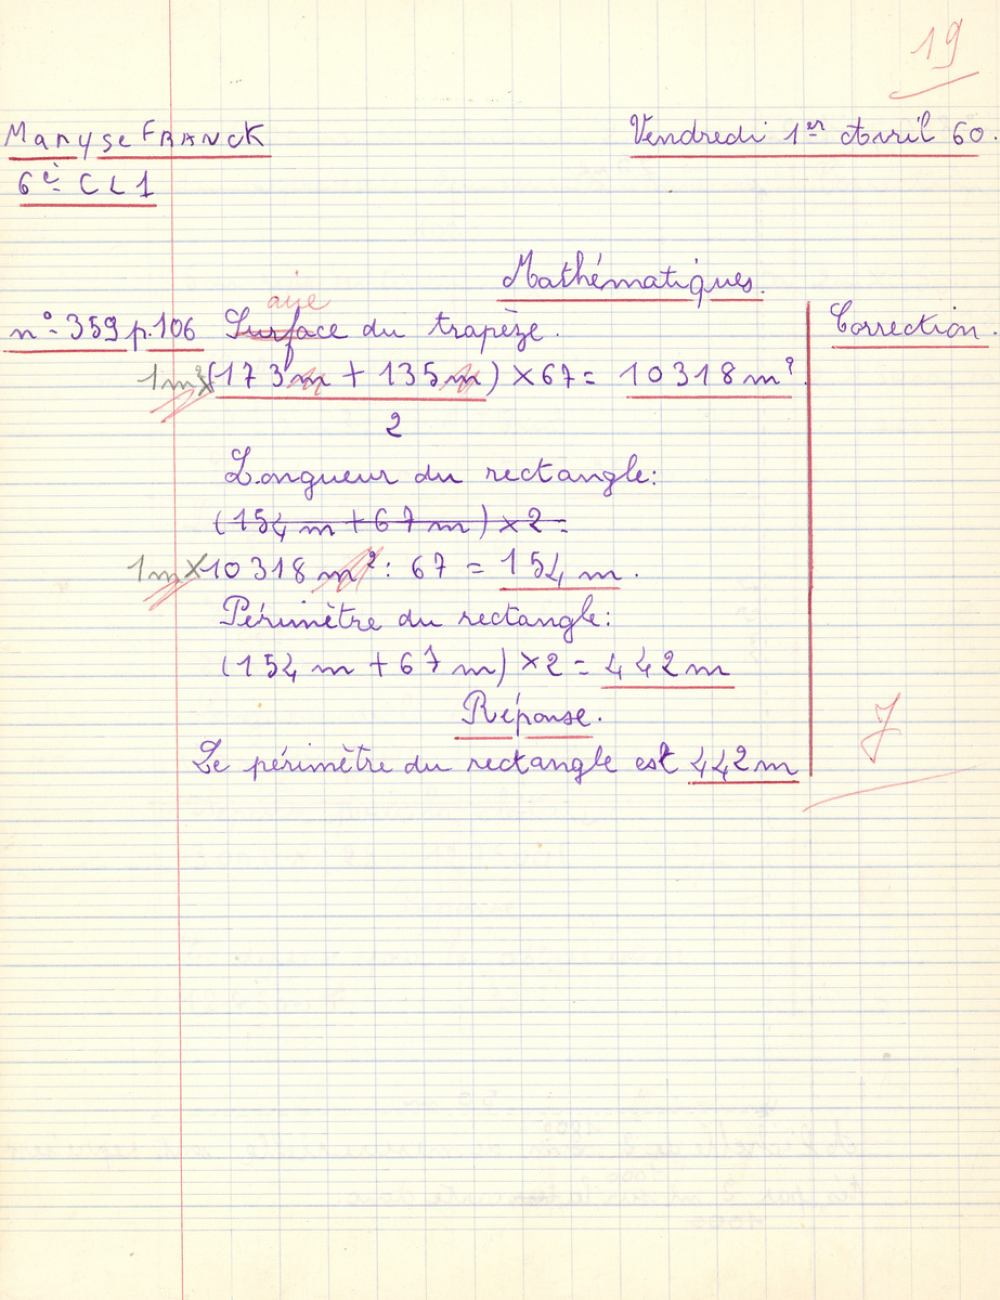 19
Maryse FRANCK
Vendredi 1er Avril 60.
6è CL1
Mathématiques.
aire
n° 359 p. 106 Surface du trapèze.
Correction.
1m² x (173 m + 135 m) × 67 = 10318 m².
2
Longueur du rectangle:
(154 m + 67 m) × 2 =
1m x 10318 m² : 67 = 154 m.
Périmètre du rectangle:
(154 m + 67 m) × 2 = 442 m
Réponse.
Le périmètre du rectangle est 442 m